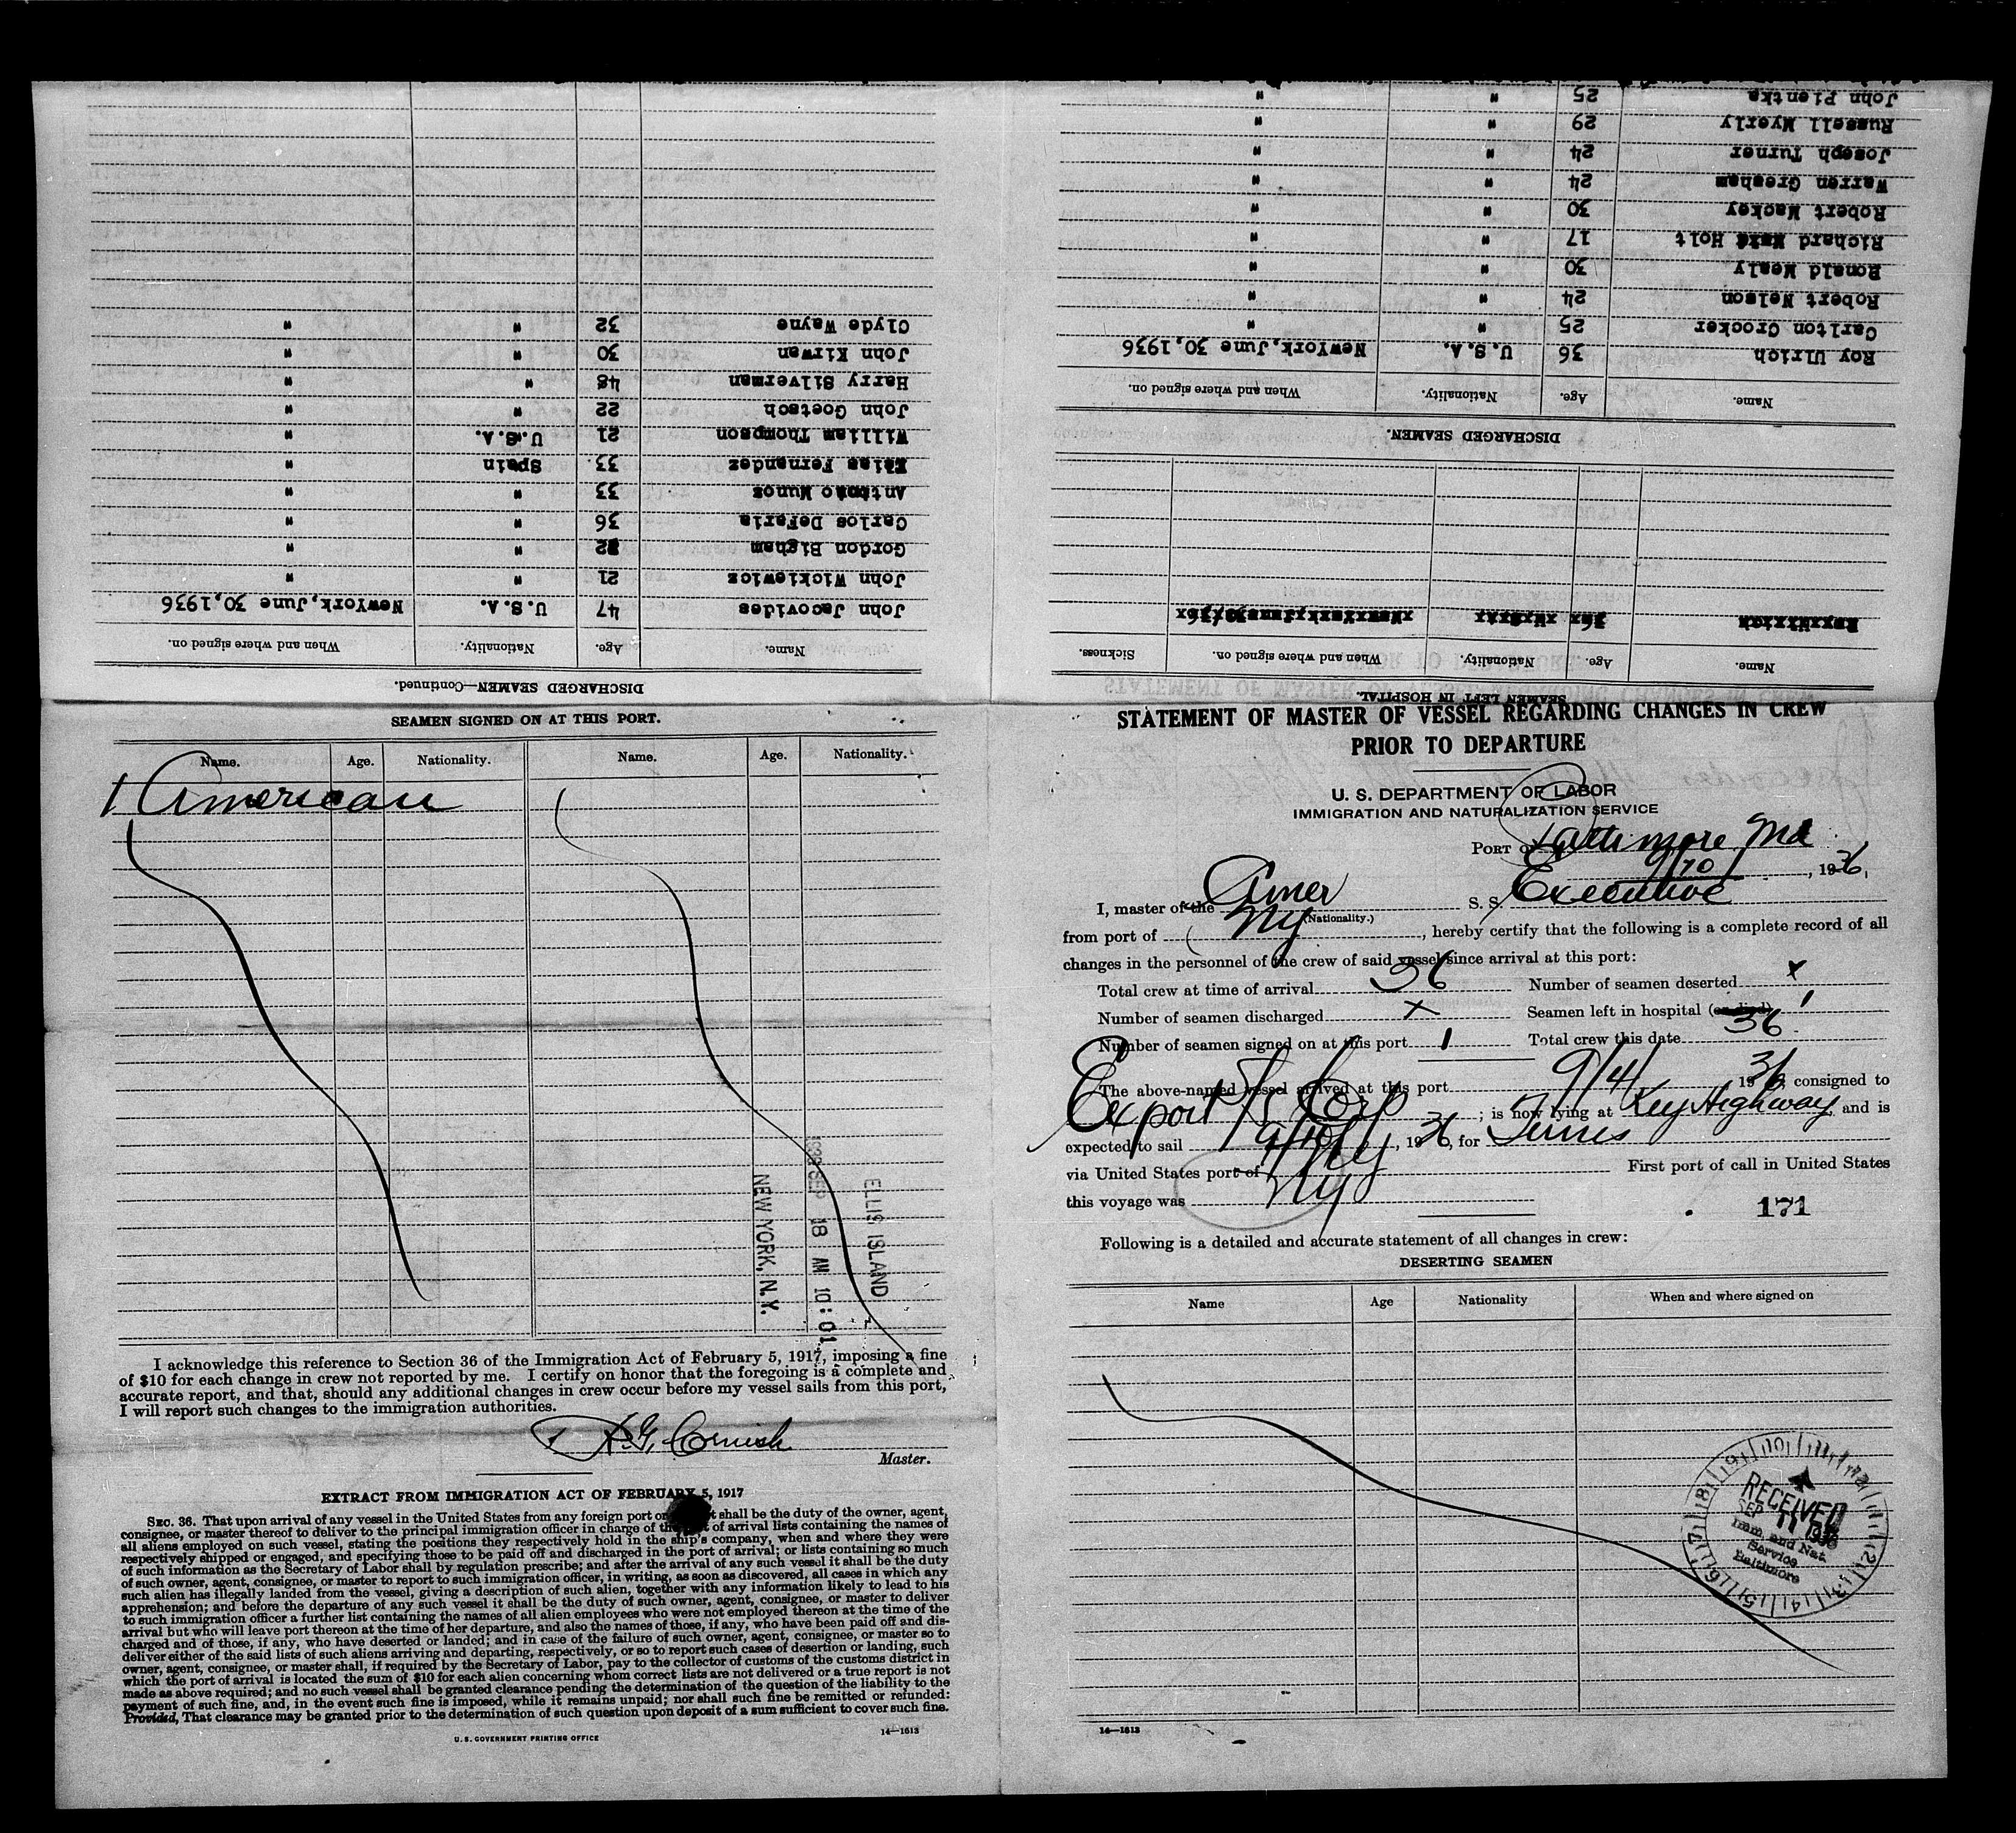 DISCHARGED SEAMEN—Continued.
Name. Age. Nationality. When and where signed on.
John Jacovides 47 U.S.A. NewYork, June 30,1936
John Wickiewicz 21 " "
Gordon Bigham 22 " "
Carlos DeFaria 36 " "
Antonio Munos 33 " "
Fernandez 33. Spain "
William Thompson 21 U.S.A. "
John Goetsch 22 " "
Harry Silverman 48 " "
John Kirwan 30 " "
Clyde Wayne 32 " "
SEAMEN LEFT IN HOSPITAL.
Name. Age. Nationality. When and where signed on. Sickness.
DISCHARGED SEAMEN.
Name. Age. Nationality. When and where signed on.
Roy Ulrich 36 U.S.A. NewYork, June 30,1936
Carlton Crocker 25 " "
Robert Nelson 24 " "
Ronald Mealy 30 " "
Richard Holt 17 " "
Robert Mackey 30 " "
Warren Gresham 24 " "
Joseph Turner 24 " "
Russell Myerly 29 " "
John Pientka 25 " "
SEAMEN SIGNED ON AT THIS PORT.
Name. Age. Nationality. Name. Age. Nationality.
1 American
ELLIS ISLAND
1936 SEP 18 AM 10:01
NEW YORK, N.Y.
I acknowledge this reference to Section 36 of the Immigration Act of February 5, 1917, imposing a fine
of $10 for each change in crew not reported by me. I certify on honor that the foregoing is a complete and
accurate report, and that, should any additional changes in crew occur before my vessel sails from this port,
I will report such changes to the immigration authorities.
H.G. Cornish
Master.
EXTRACT FROM IMMIGRATION ACT OF FEBRUARY 5, 1917
SEC. 36. That upon arrival of any vessel in the United States from any foreign port or shall be the duty of the owner, agent,
consignee, or master thereof to deliver to the principal immigration officer in charge of the of arrival lists containing the names of
all aliens employed on such vessel, stating the positions they respectively hold in the ship's company, when and where they were
respectively shipped or engaged, and specifying those to be paid off and discharged in the port of arrival; or lists containing so much
of such information as the Secretary of Labor shall by regulation prescribe; and after the arrival of any such vessel it shall be the duty
of such owner, agent, consignee, or master to report to such immigration officer, in writing, as soon as discovered, all cases in which any
such alien has illegally landed from the vessel, giving a description of such alien, together with any information likely to lead to his
apprehension; and before the departure of any such vessel it shall be the duty of such owner, agent, consignee, or master to deliver
to such immigration officer a further list containing the names of all alien employees who were not employed thereon at the time of the
arrival but who will leave port thereon at the time of her departure, and also the names of those, if any, who have been paid off and dis-
charged and of those, if any, who have deserted or landed; and in case of the failure of such owner, agent, consignee, or master so to
deliver either of the said lists of such aliens arriving and departing, respectively, or so to report such cases of desertion or landing, such
owner, agent, consignee, or master shall, if required by the Secretary of Labor, pay to the collector of customs of the customs district in
which the port of arrival is located the sum of $10 for each alien concerning whom correct lists are not delivered or a true report is not
made as above required; and no such vessel shall be granted clearance pending the determination of the question of the liability to the
payment of such fine, and, in the event such fine is imposed, while it remains unpaid; nor shall such fine be remitted or refunded:
Provided, That clearance may be granted prior to the determination of such question upon deposit of a sum sufficient to cover such fine.
U.S. GOVERNMENT PRINTING OFFICE 14—1613
STATEMENT OF MASTER OF VESSEL REGARDING CHANGES IN CREW
PRIOR TO DEPARTURE
U. S. DEPARTMENT OF LABOR
IMMIGRATION AND NATURALIZATION SERVICE
PORT OF Baltimore Md
9/10, 1936.
I, master of the Amer S. S. Executive
(Nationality.)
from port of NY, hereby certify that the following is a complete record of all
changes in the personnel of the crew of said vessel since arrival at this port:
Total crew at time of arrival 36 Number of seamen deserted x
Number of seamen discharged x Seamen left in hospital (or died) 1
Number of seamen signed on at this port 1 Total crew this date 36
The above-named vessel arrived at this port 9/4/, 1936, consigned to
Export SS Corp; is now lying at Key Highway, and is
expected to sail 9/10/, 1936, for Tunis
via United States port of NY First port of call in United States
this voyage was NY
171
Following is a detailed and accurate statement of all changes in crew:
DESERTING SEAMEN
Name Age Nationality When and where signed on
RECEIVED
SEP 11 1936
Imm. and Nat.
Service
Baltimore
14—1613